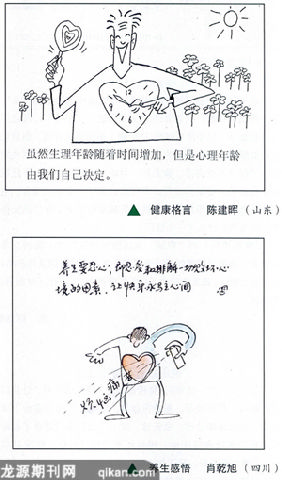 虽然生理年龄随着时间增加，但是心理年龄
由我们自己决定。
▲ 健康格言 陈建晖（山东）
养生要忍心：即忍受和排解一切坏心
境的因素，让快乐永驻心间
烦恼 痛苦
▲ 养生感悟 肖乾旭（四川）
龙源期刊网 qikan.com